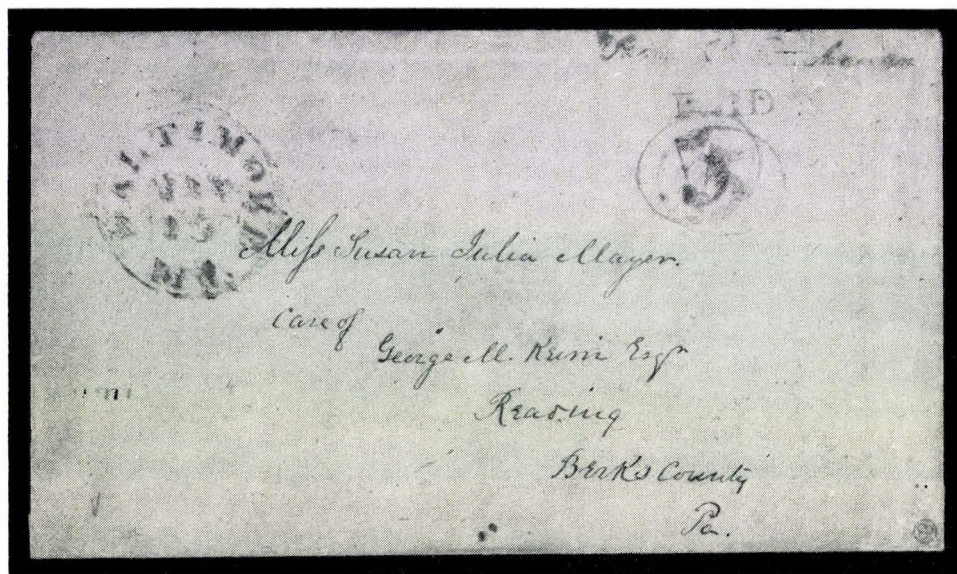 PAID
5
BALTIMORE
Md
Miss Susan Julia Mayer.
Care of
George M. Keim Esqr
Reading
Berks County
Pa.